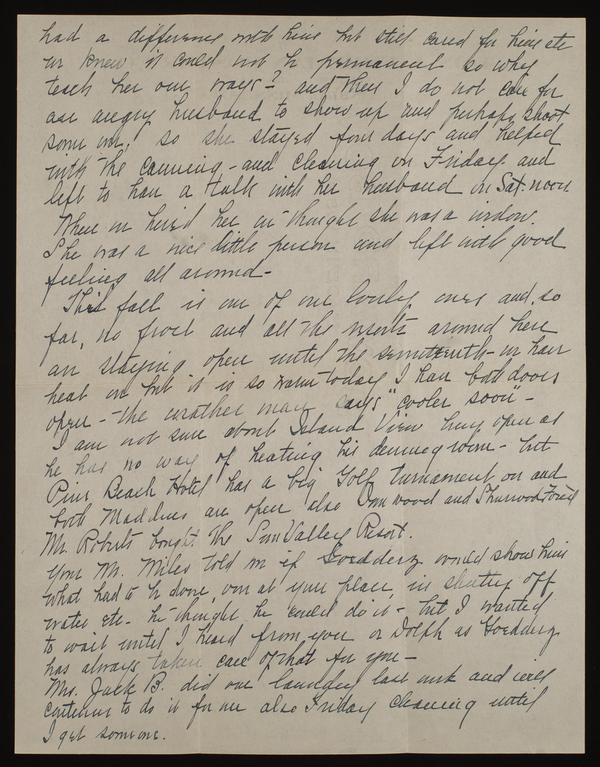 had a difference with him but still cared for him etc
we knew it could not be permanent so why
teach her our ways? and then I do not care for
an angry husband to show up and perhaps shoot
some one! so she stayed four days and helped
with the canning - and cleaning on Friday and
left to have a talk with her husband on Sat. noon.
When we hired her we thought she was a widow.
She was a nice little person and left with good
feeling all around -
This fall is one of our lovely ones and, so
far, no frost and all the resorts around here
are staying open until the seventeenth - we have
heat on but it is so warm today I have both doors
open - the weather man says "cooler soon" -
I am not sure about Island View being open as
he has no way of heating his dining room - but
Pine Beach Hotel has a big Golf turnament on and
both Maddens are open also and Sherwood Forest
Mr. Roberts bought the Sun Valley Resort.
Your Mr. Miles told me if Goedderz would show him
what had to be done, over at your place, in shutting off
water etc. he thought he could do it - but I wanted
to wait until I heard from you or Dolph as Goedderz
has always taken care of that for you -
Mrs. Jack B. did our laundry last week and will
continue to do it for me also Friday cleaning until
I get someone.